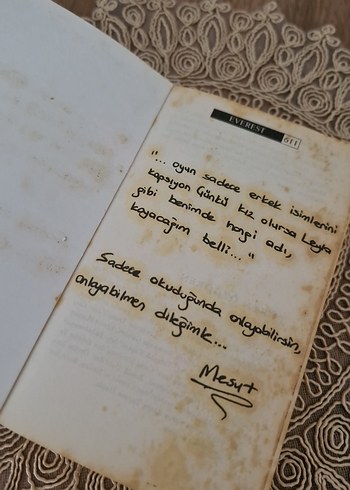 EVEREST 611
"... oyun sadece erkek isimlerini
kapsıyon Günkü kız olursa Leyla
gibi benimde hangi adı,
koyacağım belli..."
Sadece okuduğunda anlayabilirsin,
anlayabilmen dileğimle...
Mesut